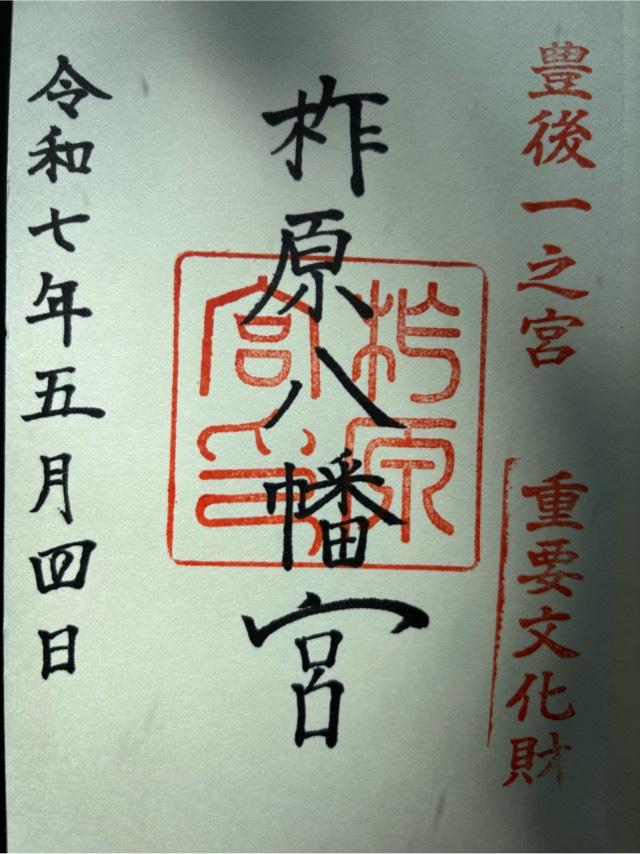 豊後一之宮 重要文化財
柞原八幡宮
柞原宮印
令和七年五月四日